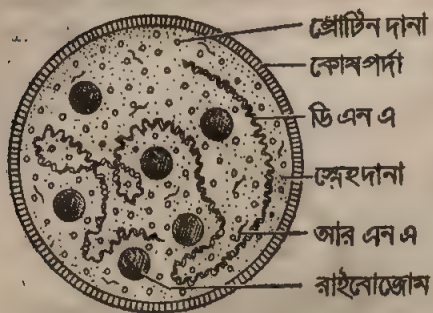 প্রোটিন দানা
কোষপর্দা
ডি এন এ
স্নেহদানা
আর এন এ
রাইবোজোম